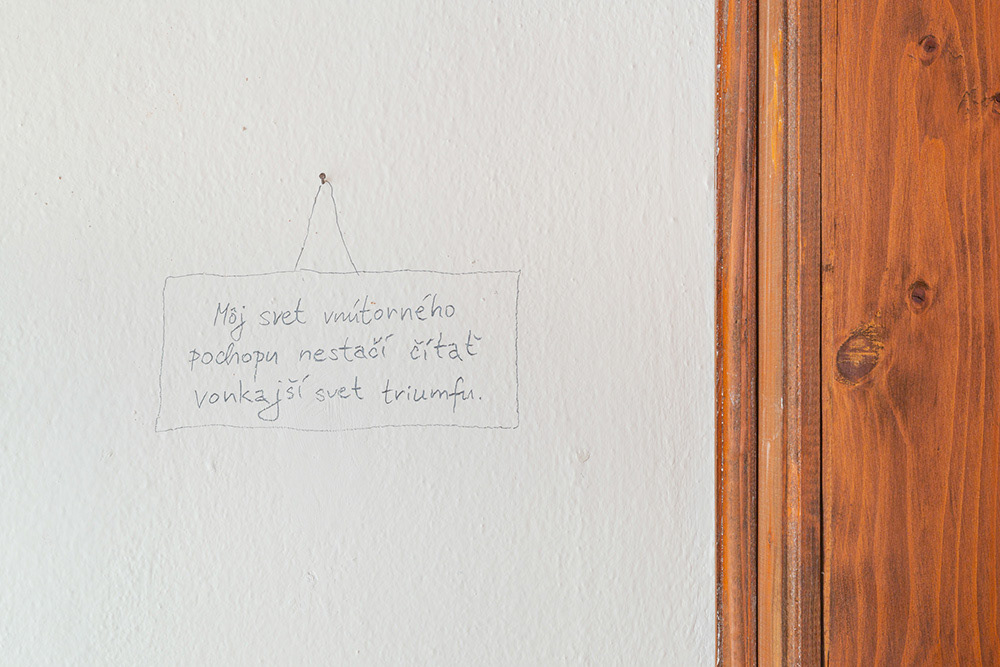 Môj svet vnútorného
pochopu nestačí čítať
vonkajší svet triumfu.